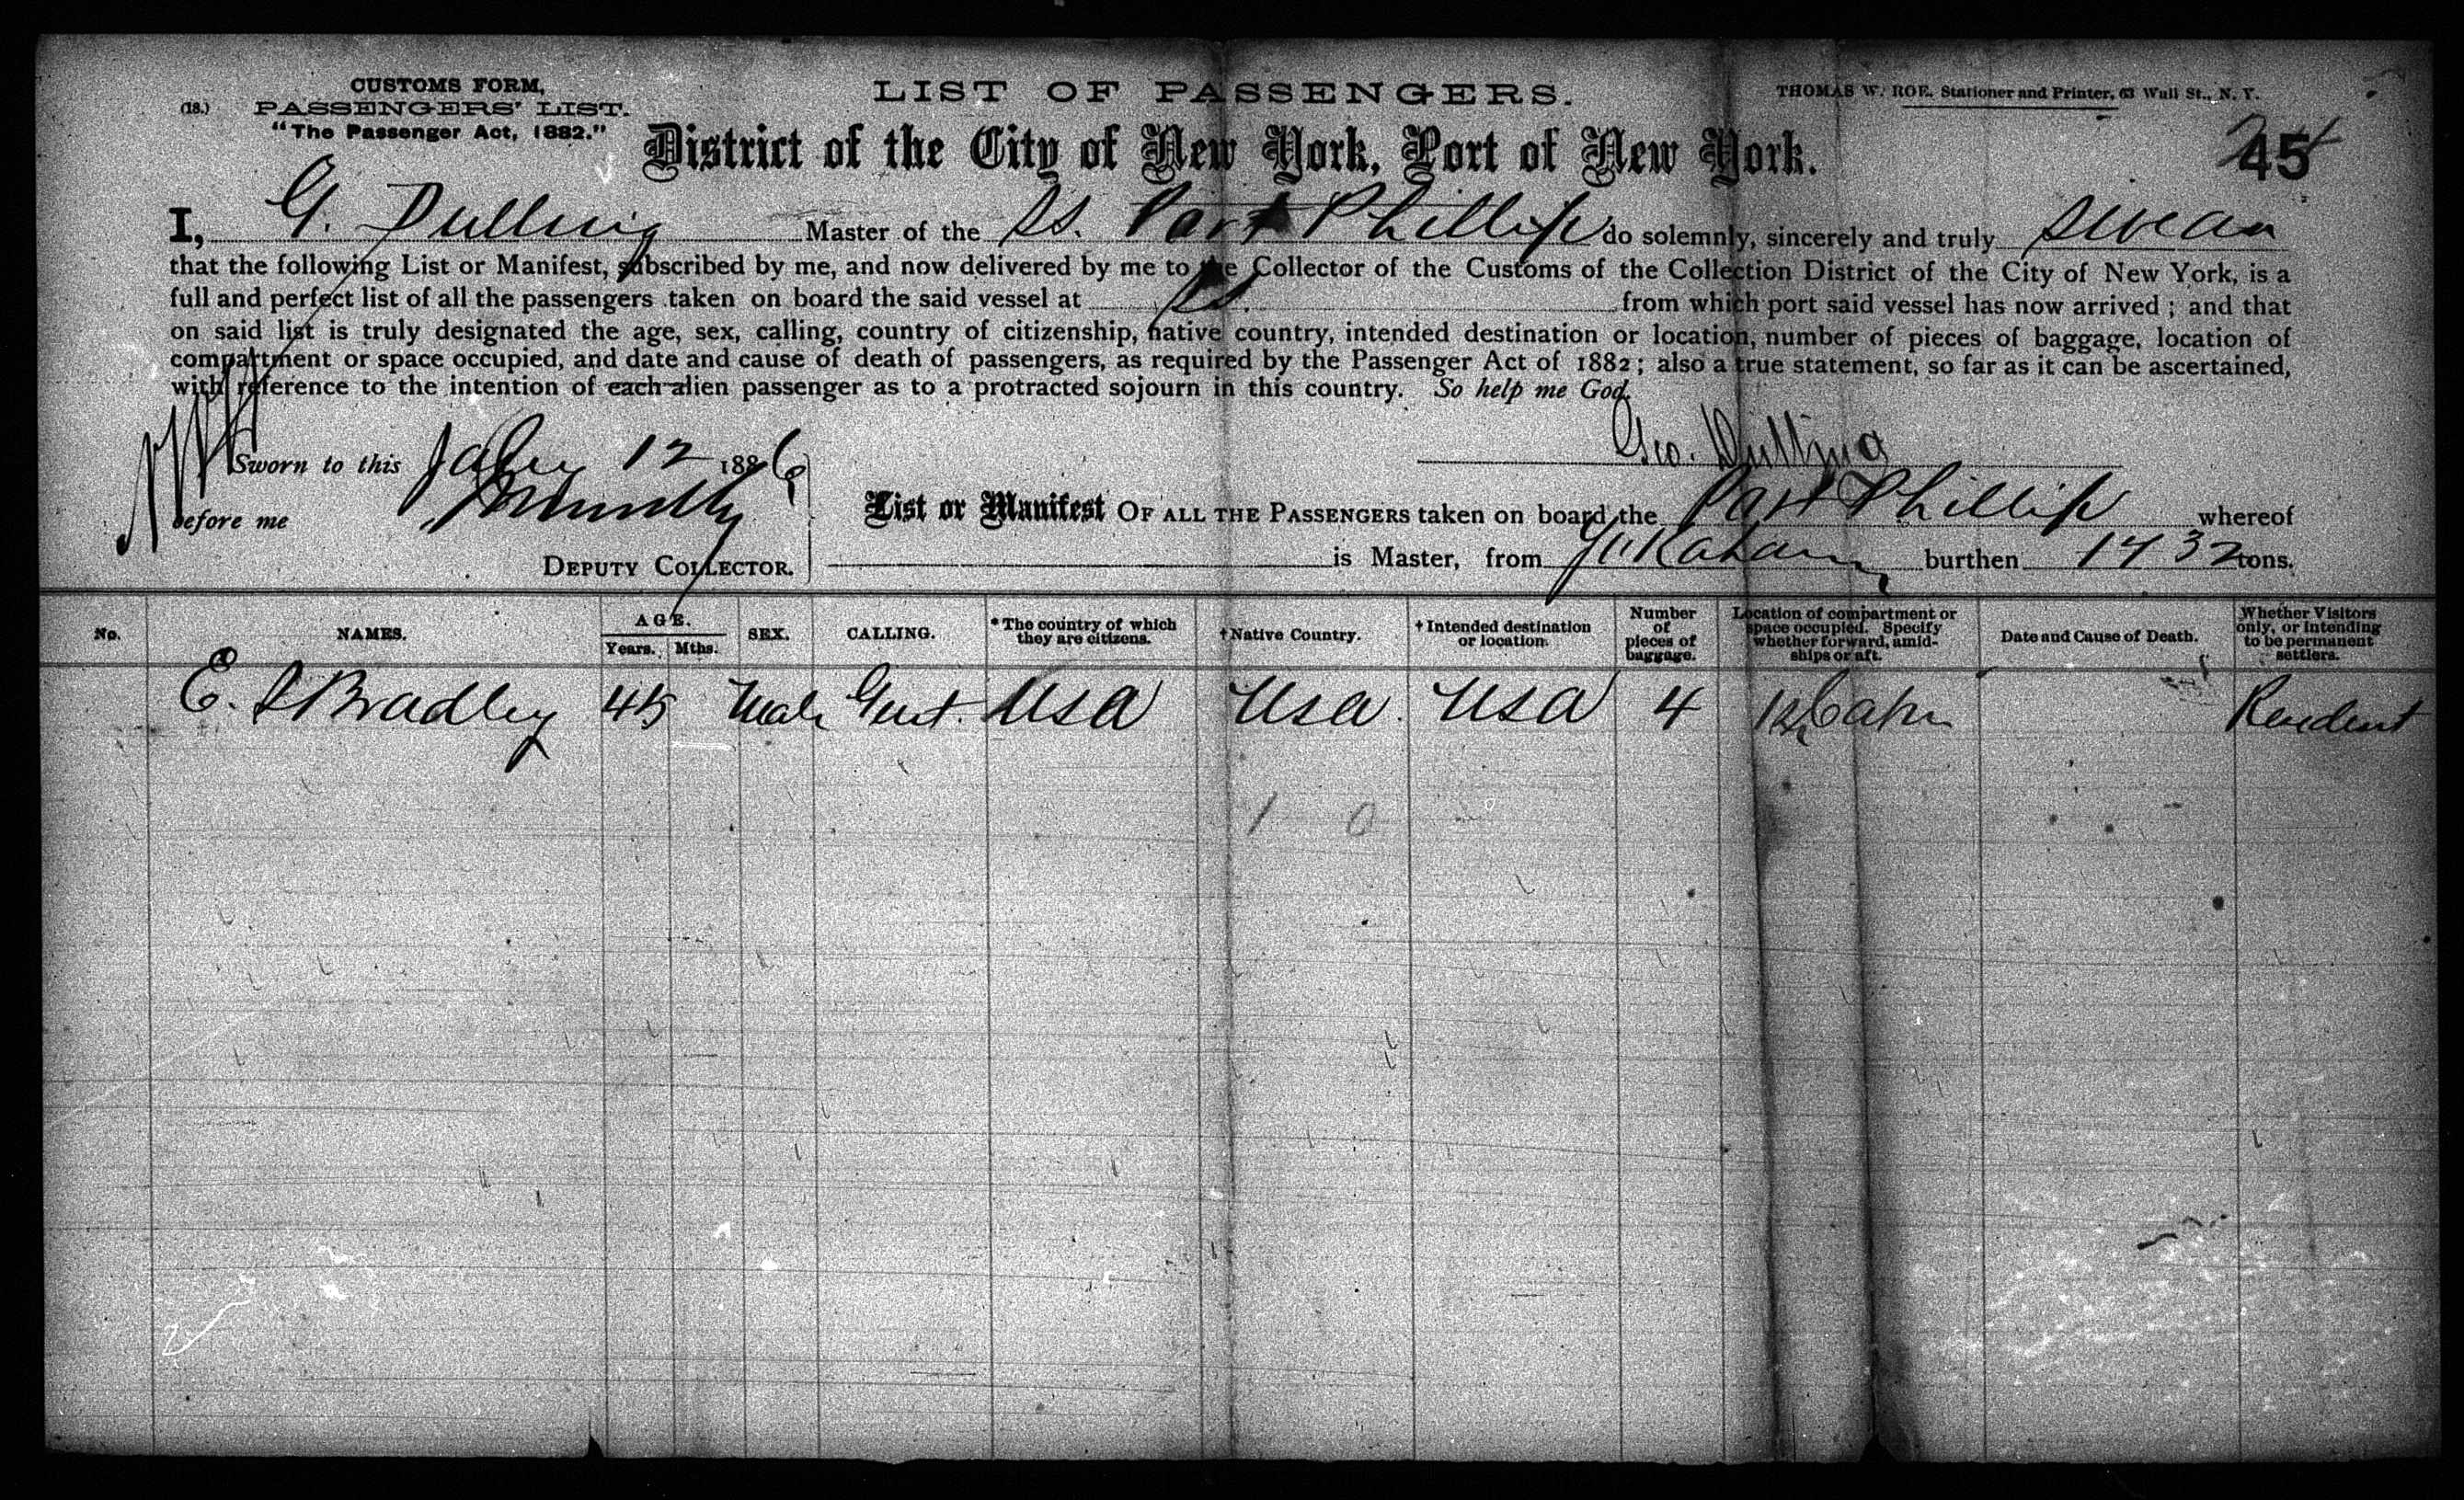 CUSTOMS FORM,
(18.) PASSENGERS' LIST.
"The Passenger Act, 1882."
LIST OF PASSENGERS.
THOMAS W. ROE, Stationer and Printer, 63 Wall St., N. Y.
District of the City of New York, Port of New York.
45
I, G. Dulling Master of the SS. Port Phillip do solemnly, sincerely and truly swear
that the following List or Manifest, subscribed by me, and now delivered by me to the Collector of the Customs of the Collection District of the City of New York, is a
full and perfect list of all the passengers taken on board the said vessel at from which port said vessel has now arrived; and that
on said list is truly designated the age, sex, calling, country of citizenship, native country, intended destination or location, number of pieces of baggage, location of
compartment or space occupied, and date and cause of death of passengers, as required by the Passenger Act of 1882; also a true statement, so far as it can be ascertained,
with reference to the intention of each alien passenger as to a protracted sojourn in this country. So help me God.
Geo. Dulling
Sworn to this Jany 12 1886
before me
DEPUTY COLLECTOR.
List or Manifest OF ALL THE PASSENGERS taken on board the Port Phillip whereof
is Master, from Yokohama burthen 1732 tons.
No. NAMES. AGE. Years. Mths. SEX. CALLING. *The country of which they are citizens. †Native Country. †Intended destination or location. Number of pieces of baggage. Location of compartment or space occupied. Specify whether forward, amidships or aft. Date and Cause of Death. Whether Visitors only, or intending to be permanent settlers.
E. S Bradley 45 Male Gent. USA USA USA 4 Resident
1 0